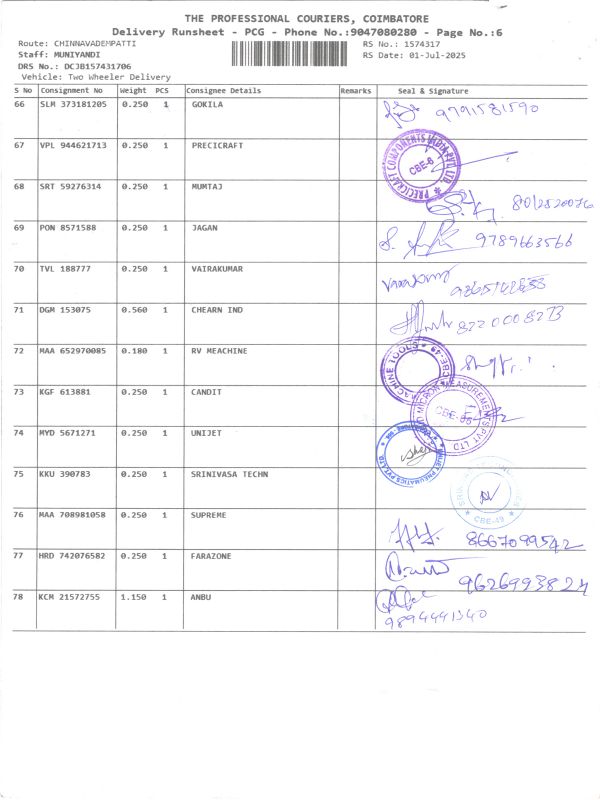 THE PROFESSIONAL COURIERS, COIMBATORE
Delivery Runsheet - PCG - Phone No.:9047080280 - Page No.:6
Route: CHINNAVADEMPATTI RS No.: 1574317
Staff: MUNIYANDI RS Date: 01-Jul-2025
DRS No.: DCJB157431706
Vehicle: Two Wheeler Delivery
S No Consignment No Weight PCS Consignee Details Remarks Seal & Signature
66 SLM 373181205 0.250 1 GOKILA 9791581590
67 VPL 944621713 0.250 1 PRECICRAFT PRECICRAFT COMPONENTS INDIA PVT LTD CBE-6
68 SRT 59276314 0.250 1 MUMTAJ
69 PON 8571588 0.250 1 JAGAN 9789663566
70 TVL 188777 0.250 1 VAIRAKUMAR
71 DGM 153075 0.560 1 CHEARN IND 8220008273
72 MAA 652970085 0.180 1 RV MEACHINE MACHINE TOOLS CBE-49
73 KGF 613881 0.250 1 CANDIT MICRON MEASUREMENTS PVT LTD
74 MYD 5671271 0.250 1 UNIJET UNIJET PNEUMATICS PVT LTD
75 KKU 390783 0.250 1 SRINIVASA TECHN CBE-49
76 MAA 708981058 0.250 1 SUPREME 8667099542
77 HRD 742076582 0.250 1 FARAZONE 9626993824
78 KCM 21572755 1.150 1 ANBU 9894441340